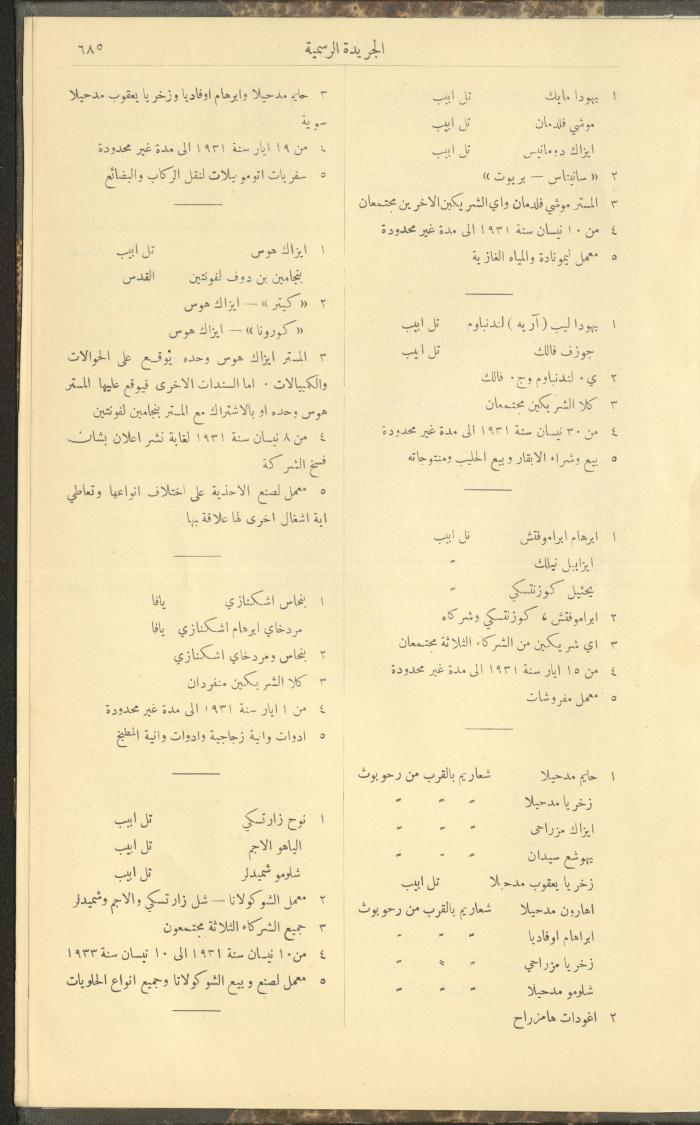 الجريدة الرسمية ٦٨٥
١ يهودا مايك تل ابيب
موشي فلدمان تل ابيب
ايزاك دومانيس تل ابيب
٢ « سانيتاس — بريوت »
٣ المستر موشي فلدمان واي الشريكين الاخرين مجتمعان
٤ من ١٠ نيسان سنة ١٩٣١ الى مدة غير محدودة
٥ معمل ليمونادة والمياه الغازية
١ يهودا ليب ( آريه ) لندنباوم تل ابيب
جوزف فالك تل ابيب
٢ ي٠ لندنباوم وج٠ فالك
٣ كلا الشريكين مجتمعان
٤ من ٣٠ نيسان سنة ١٩٣١ الى مدة غير محدودة
٥ بيع وشراء الابقار وبيع الحليب ومنتوجاته
١ ابرهام ابراموفتش تل ابيب
ايزابيل نيلك ″
يحئيل كوزنتسكي ″
٢ ابراموفتش ، كوزنتسكي وشركاه
٣ اي شريكين من الشركاء الثلاثة مجتمعان
٤ من ١٥ ايار سنة ١٩٣١ الى مدة غير محدودة
٥ معمل مفروشات
١ حايم مدحيلا شعاريم بالقرب من رحوبوث
زخريا مدحيلا ″ ″ ″
ايزاك مزراحي ″ ″ ″
يهوشع سيدان ″ ″ ″
زخريا يعقوب مدحيلا تل ابيب
اهارون مدحيلا شعاريم بالقرب من رحوبوث
ابراهام اوفاديا ″ ″ ″
زخريا مزراحي ″ ″ ″
شلومو مدحيلا ″ ″ ″
٢ اغودات هامزراح
٣ حايم مدحيلا وابرهام اوفاديا وزخريا يعقوب مدحيلا
سوية
٤ من ١٩ ايار سنة ١٩٣١ الى مدة غير محدودة
٥ سفريات اتوموبيلات لنقل الركاب والبضائع
١ ايزاك هوس تل ابيب
بنجامين بن دوف لفونتين القدس
٢ « كيتر » — ايزاك هوس
« كورونا » — ايزاك هوس
٣ المستر ايزاك هوس وحده يُوقع على الحوالات
والكمبيالات ٠ اما السندات الاخرى فيوقع عليها المستر
هوس وحده او بالاشتراك مع المستر بنجامين لفونتين
٤ من ٨ نيسان سنة ١٩٣١ لغاية نشر اعلان بشأن
فسخ الشركة
٥ معمل لصنع الاحذية على اختلاف انواعها وتعاطي
اية اشغال اخرى لها علاقة بها
١ بنحاس اشكنازي يافا
مردخاي ابرهام اشكنازي يافا
٢ بنحاس ومردخاي اشكنازي
٣ كلا الشريكين منفردان
٤ من ١ ايار سنة ١٩٣١ الى مدة غير محدودة
٥ ادوات وانية زجاجية وادوات وانية المطبخ
١ نوح زارتسكي تل ابيب
الياهو الاجم تل ابيب
شلومو شميدلر تل ابيب
٢ معمل الشوكولاتا — شل زارتسكي والاجم وشميدلر
٣ جميع الشركاء الثلاثة مجتمعون
٤ من ١٠ نيسان سنة ١٩٣١ الى ١٠ نيسان سنة ١٩٣٣
٥ معمل لصنع وبيع الشوكولاتا وجميع انواع الحلويات